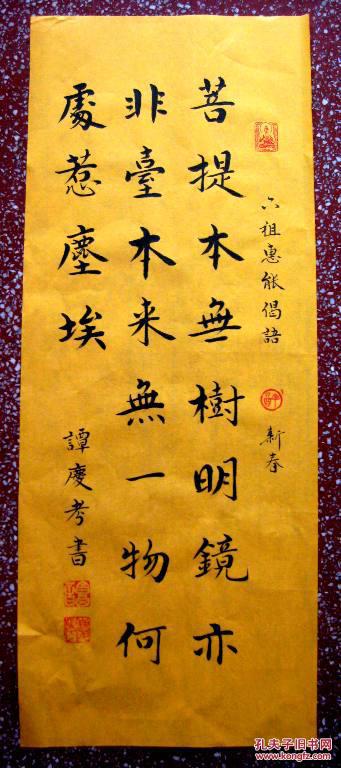 六祖惠能偈語 新春
菩提本無樹明鏡亦
非臺本来無一物何
處惹塵埃
譚慶考書
孔夫子旧书网